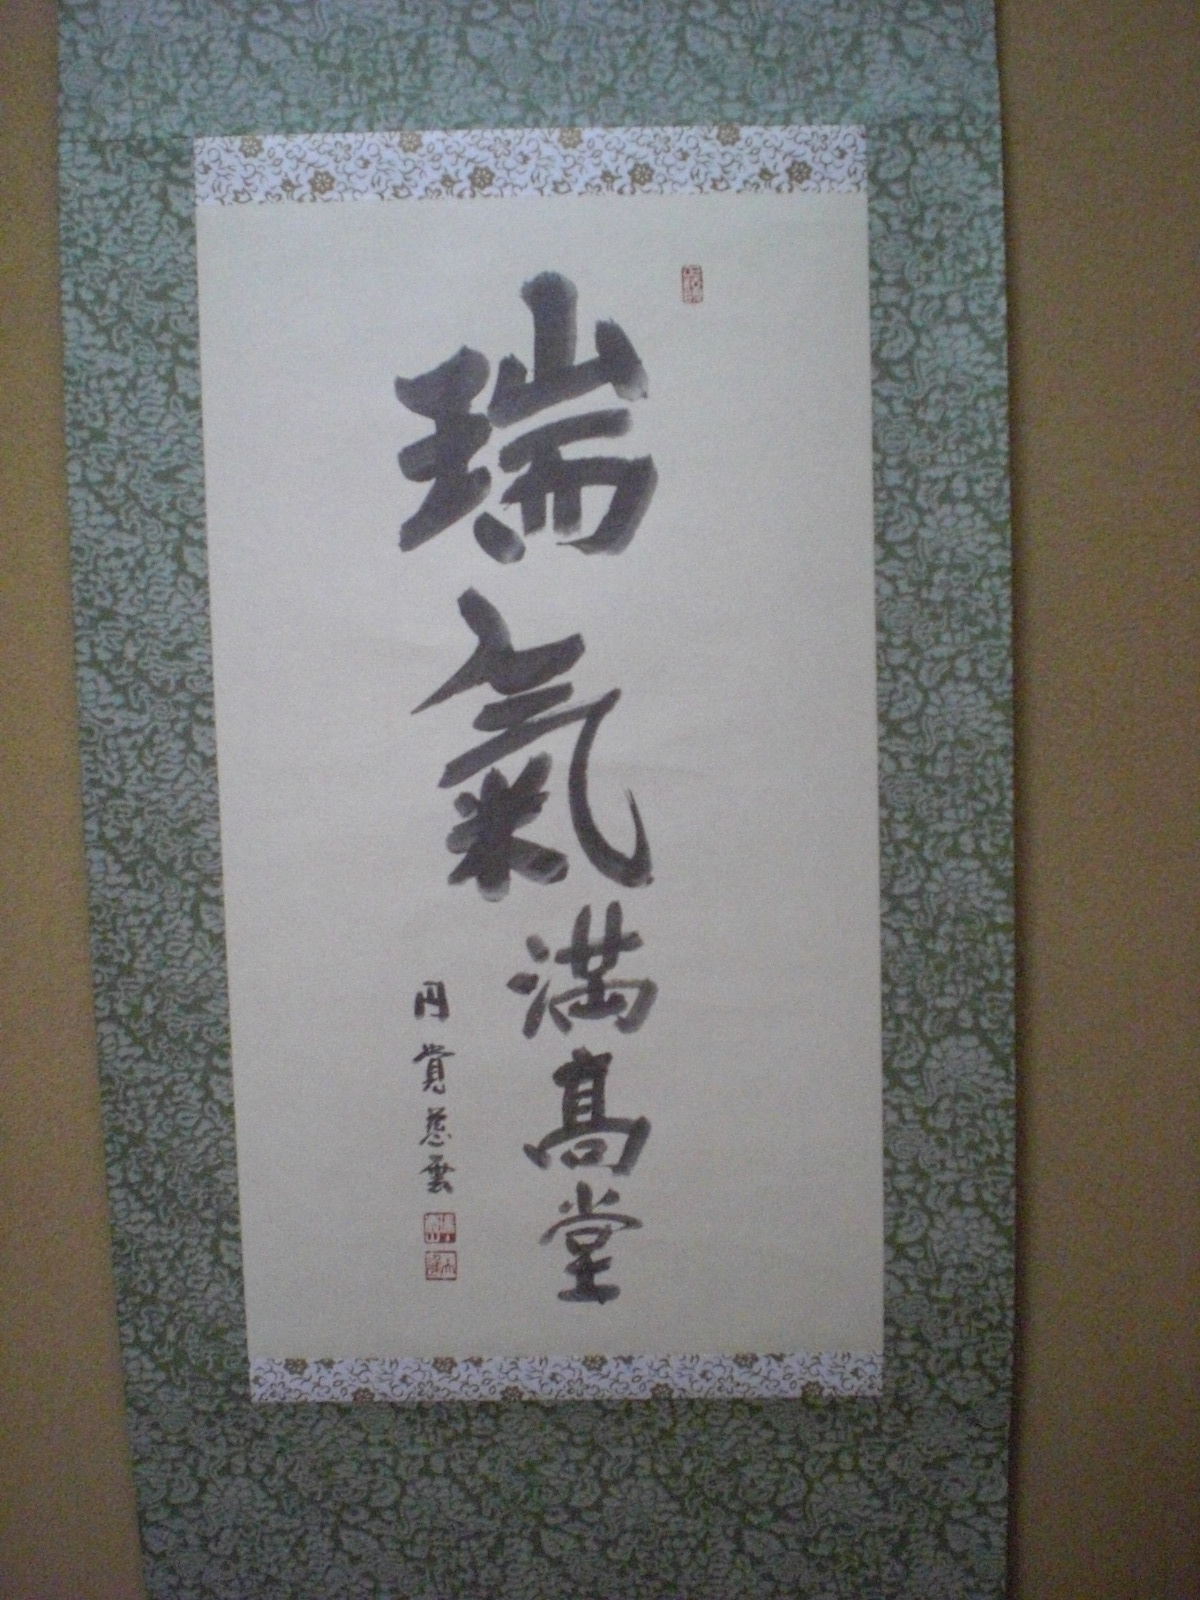 瑞氣満高堂
円覚慈雲